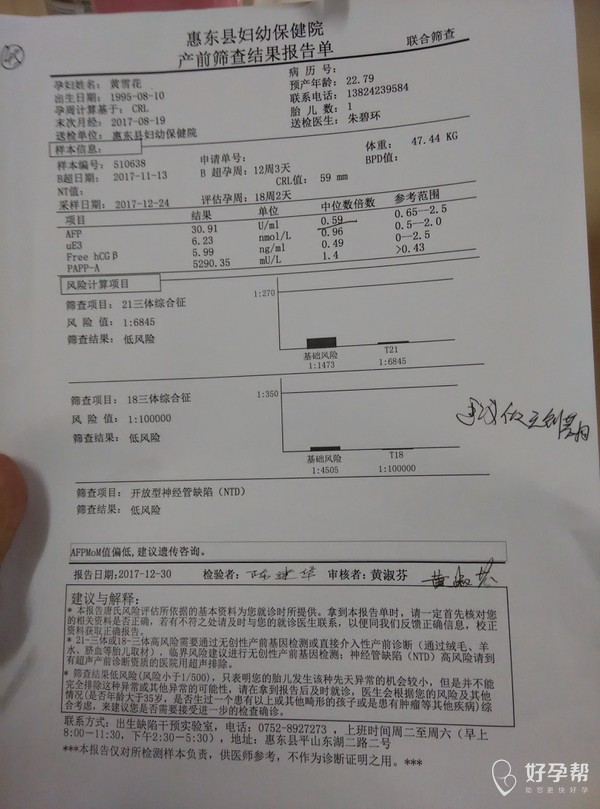 惠东县妇幼保健院
产前筛查结果报告单
联合筛查
孕妇姓名： 黄雪花 病 历 号：
出生日期： 1995-08-10 预产年龄： 22.79
孕周计算基于： CRL 联系电话： 13824239584
末次月经： 2017-08-19 胎 儿 数： 1
送检单位： 惠东县妇幼保健院 送检医生： 朱碧环
样本信息：
样本编号： 510638 申请单号： 体重： 47.44 KG
B超日期： 2017-11-13 B 超孕周： 12周3天 BPD值：
NT值： CRL值： 59 mm
采样日期： 2017-12-24 评估孕周： 18周2天
项目 结果 单位 中位数倍数 参考范围
AFP 30.91 U/ml 0.59 0.65--2.5
uE3 6.23 nmol/L 0.96 0.5--2.0
Free hCGβ 5.99 ng/ml 0.49 0--2.5
PAPP-A 5290.35 mU/L 1.4 >0.43
风险计算项目
筛查项目： 21三体综合征
风 险 值： 1:6845
筛查结果： 低风险
1:270
基础风险 T21
1:1473 1:6845
筛查项目： 18三体综合征
风 险 值： 1:100000
筛查结果： 低风险
1:350
基础风险 T18
1:4505 1:100000
筛查项目： 开放型神经管缺陷（NTD）
筛查结果： 低风险
AFPMoM值偏低,建议遗传咨询。
报告日期:2017-12-30 检验者： 审核者：黄淑芬 黄淑芬
建议与解释:
* 本报告唐氏风险评估所依据的基本资料为您就诊时所提供。拿到本报告单时，请一定首先核对您
的相关资料是否正确，若有不符之处请及时与您的就诊医生联系，以便同我们反馈正确信息，校正
资料获取正确报告。
* 21-三体或18-三体高风险需要通过无创性产前基因检测或直接介入性产前诊断（通过绒毛、羊
水、脐血等胎儿取材），临界风险建议进行无创性产前基因检测；神经管缺陷（NTD）高风险请到
有超声产前诊断资质的医院用超声排除。
* 筛查结果低风险(风险小于1/500)，只表明您的胎儿发生该种先天异常的机会较小，但是并不能
完全排除这种异常或其他异常的可能性，请在拿到报告后及时就诊，医生会根据您的风险及其他
情况(是否年龄大于35岁，是否生过一个患有以上或其他畸形的孩子或是患有肿瘤等其他疾病)综
合考虑，来建议您是否需要接受进一步的检查确诊。
联系方式：出生缺陷干预实验室，电话：0752-8927273 ，上班时间周二至周六（早上
8:00--11:30，下午2:30--5:30），地址：惠东县平山东湖二路二号
***本报告仅对所检测样本负责，供医师参考，不作为诊断证明之用。***
好孕帮
助您更快好孕